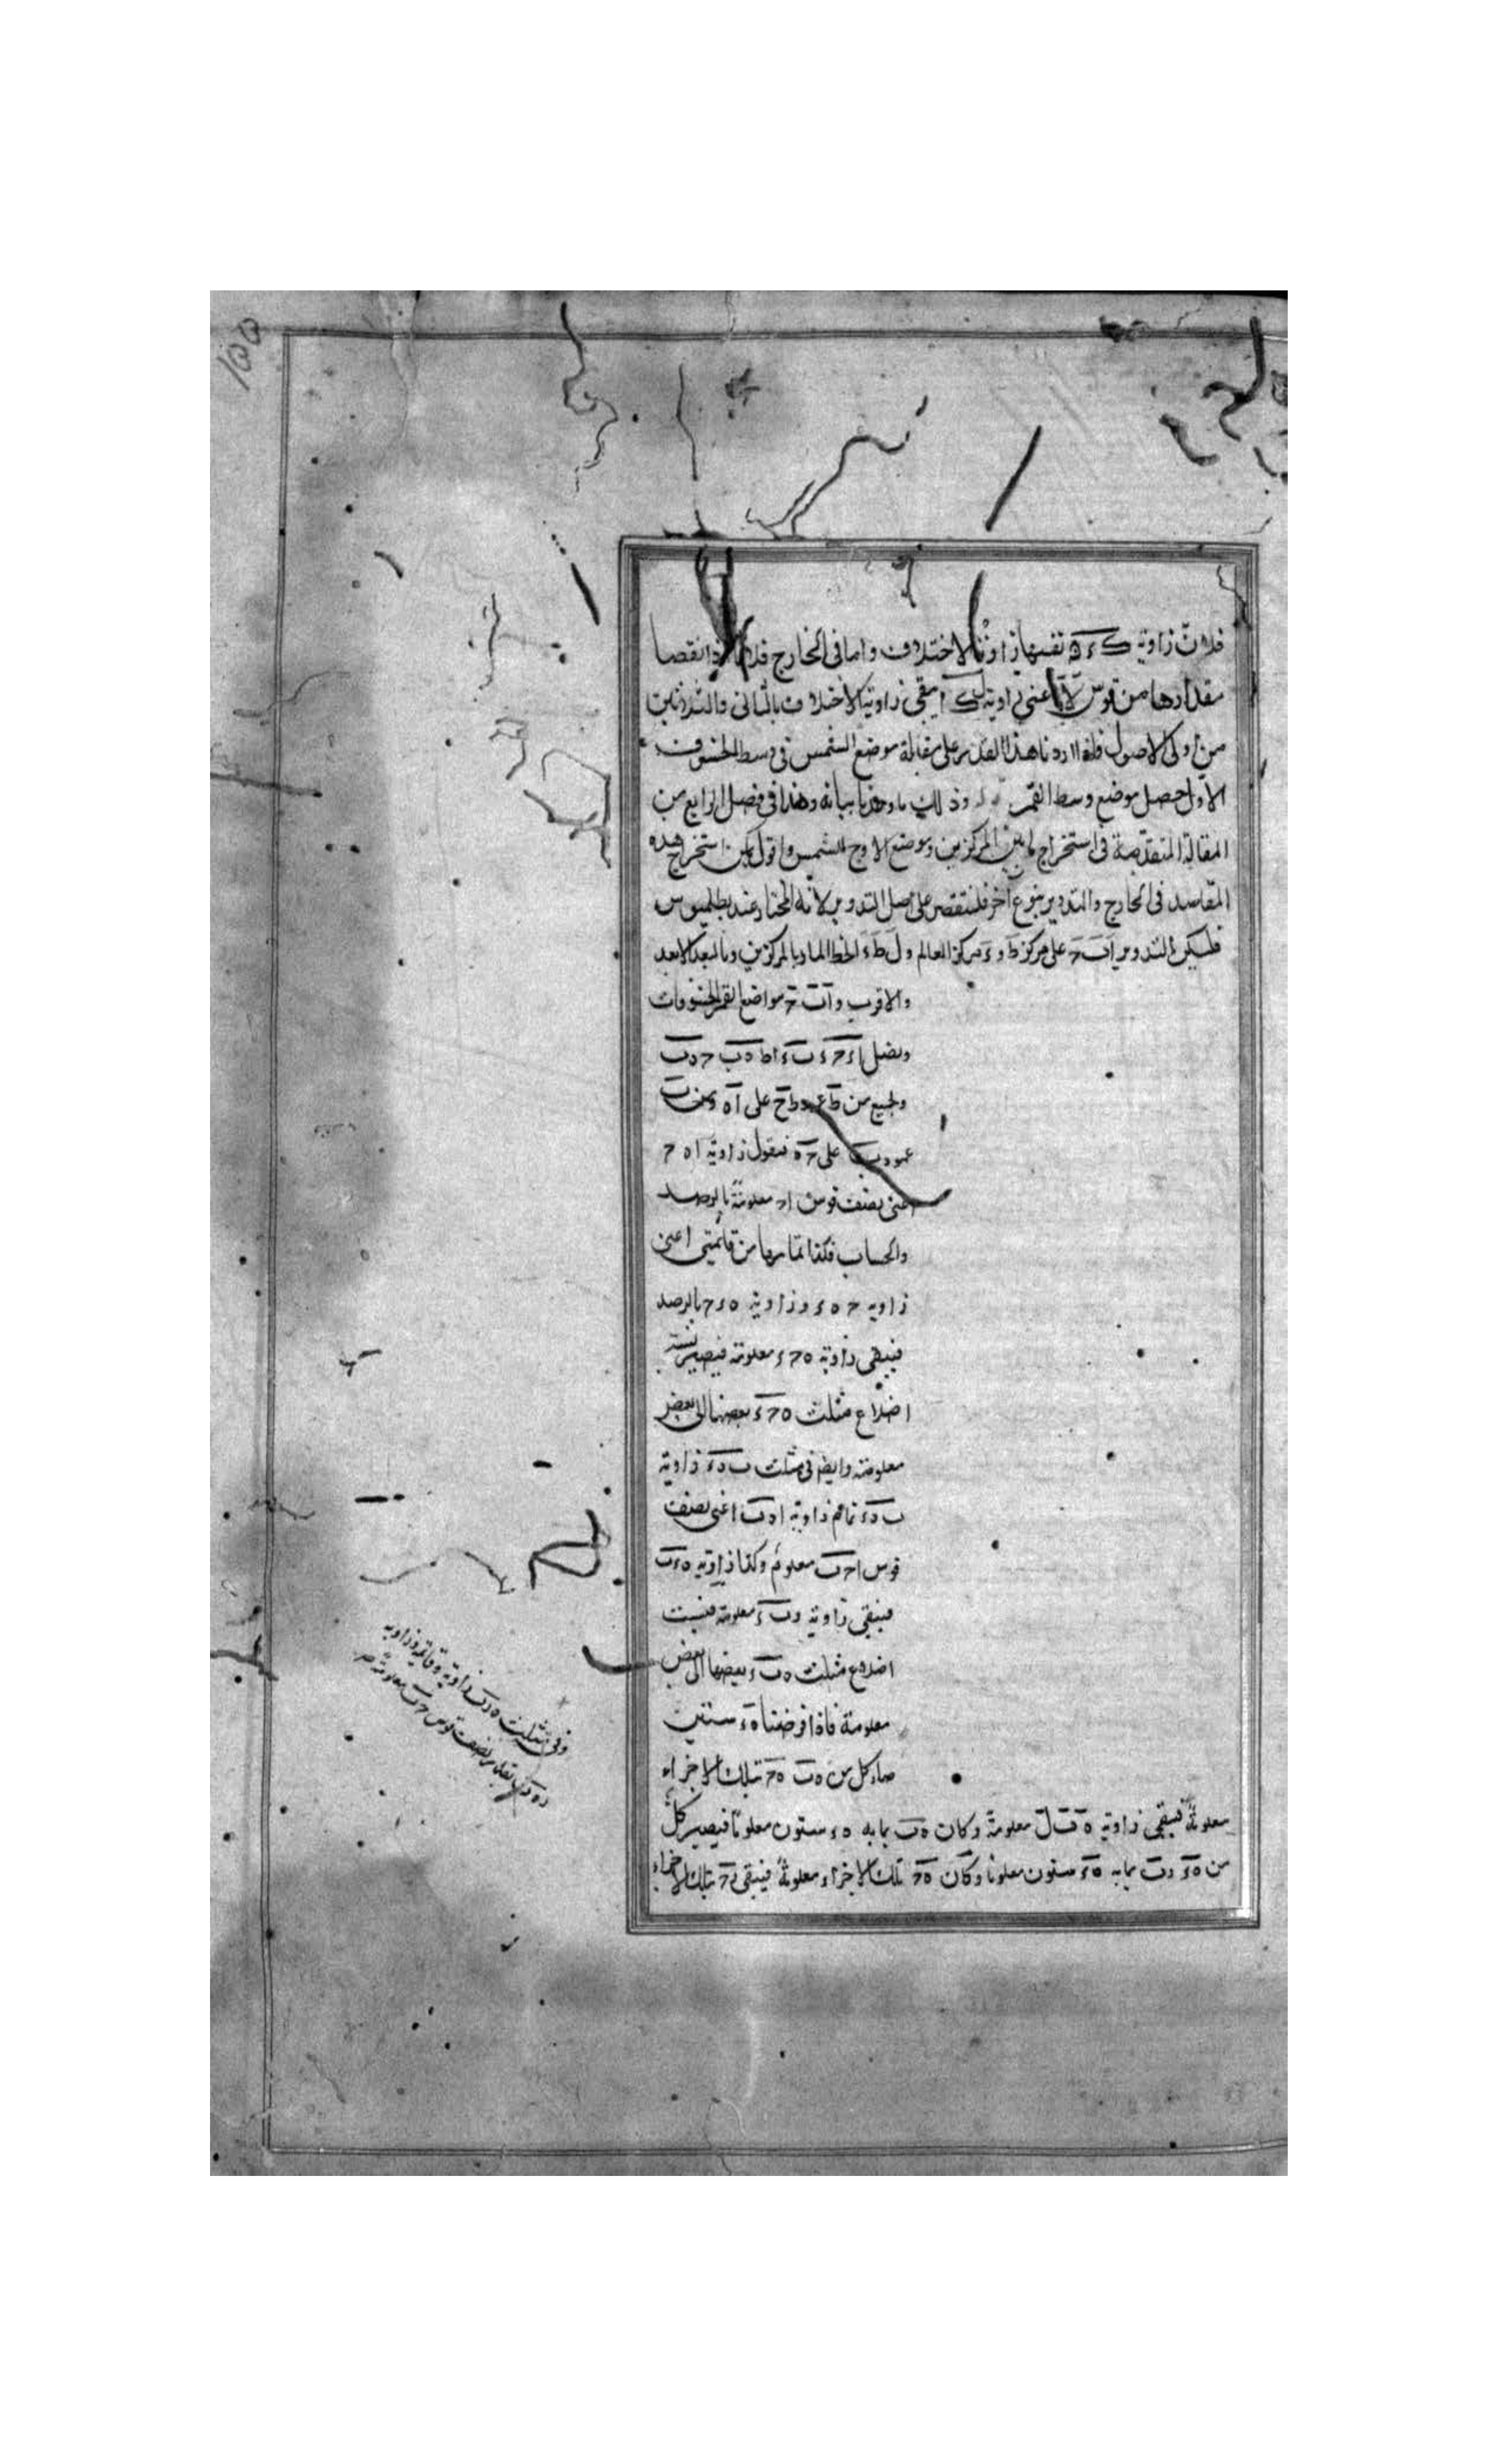 فلان زاوية ك ء ه نفسها زاوية الاختلاف واما فى الخارج فلانا اذا نقصنا
مقدارها من قوس اعنى زاوية ك يبقى زاوية الاختلاف بالثانى والثلاثين
من اولى الاصول فلذا اردنا هذا القدر على مقابلة موضع الشمس فى وسط الخسوف
الاول حصل موضع وسط القمر وذلك ما وعدنا بيانه وهذا فى فصل الرابع من
المقالة المتقدمة فى استخراج ما بين المركزين وموضع الاوج للشمس واقول يمكن استخراج هذه
المقاصد فى الخارج والتدوير بنوع آخر فلنقتصر على اصل التدوير لانه المختار عند بطلميوس
فليكن التدوير ا ب ح على مركز ط و ء مركز العالم و ل ط ء الخط المار بالمركزين وبالبعد الابعد
والاقرب و ا ب ح مواضع القمر للخسوفات
ونصل ا ء ح ء ب ء ا ط ه ب ح ه ب
على ا ه ومن ب
عمود على ح ه فنقول زاوية ا ه ح
اعنى نصف قوس ا ح معلومة بالرصد
والحساب فكذا تمامها من قائمتين اعنى
زاوية ح ه ء وزاوية ه ء ح بالرصد
فيبقى زاوية ه ح ء معلومة فيصير نسبة
اضلاع مثلث ه ح ء بعضها الى بعض
معلومة وايضا فى مثلث ب ه ء زاوية
ب ه ء تمام زاوية ا ه ب اعنى نصف
قوس ا ح ب معلوم وكذا زاوية ه ء ب
فيبقى زاوية ه ب ء معلومة فنسبت
اضلاع مثلث ه ب ء بعضها الى بعض
معلومة فاذا فرضنا ه ء ستين
صار كل من ه ب ه ح بتلك الاجزاء
معلومة فيبقى زاوية معلومة وكان ه ب بما به ه ء ستون معلوما فيصير كل
من بما به ه ء ستون معلوما وكان ه ح بتلك الاجزاء معلومة فيبقى ر ح بتلك الاجزاء
وفى مثلث ه ر ب زاوية ر قائمة وزاوية
ر ه ب بقدر نصف قوس ح ب معلومة